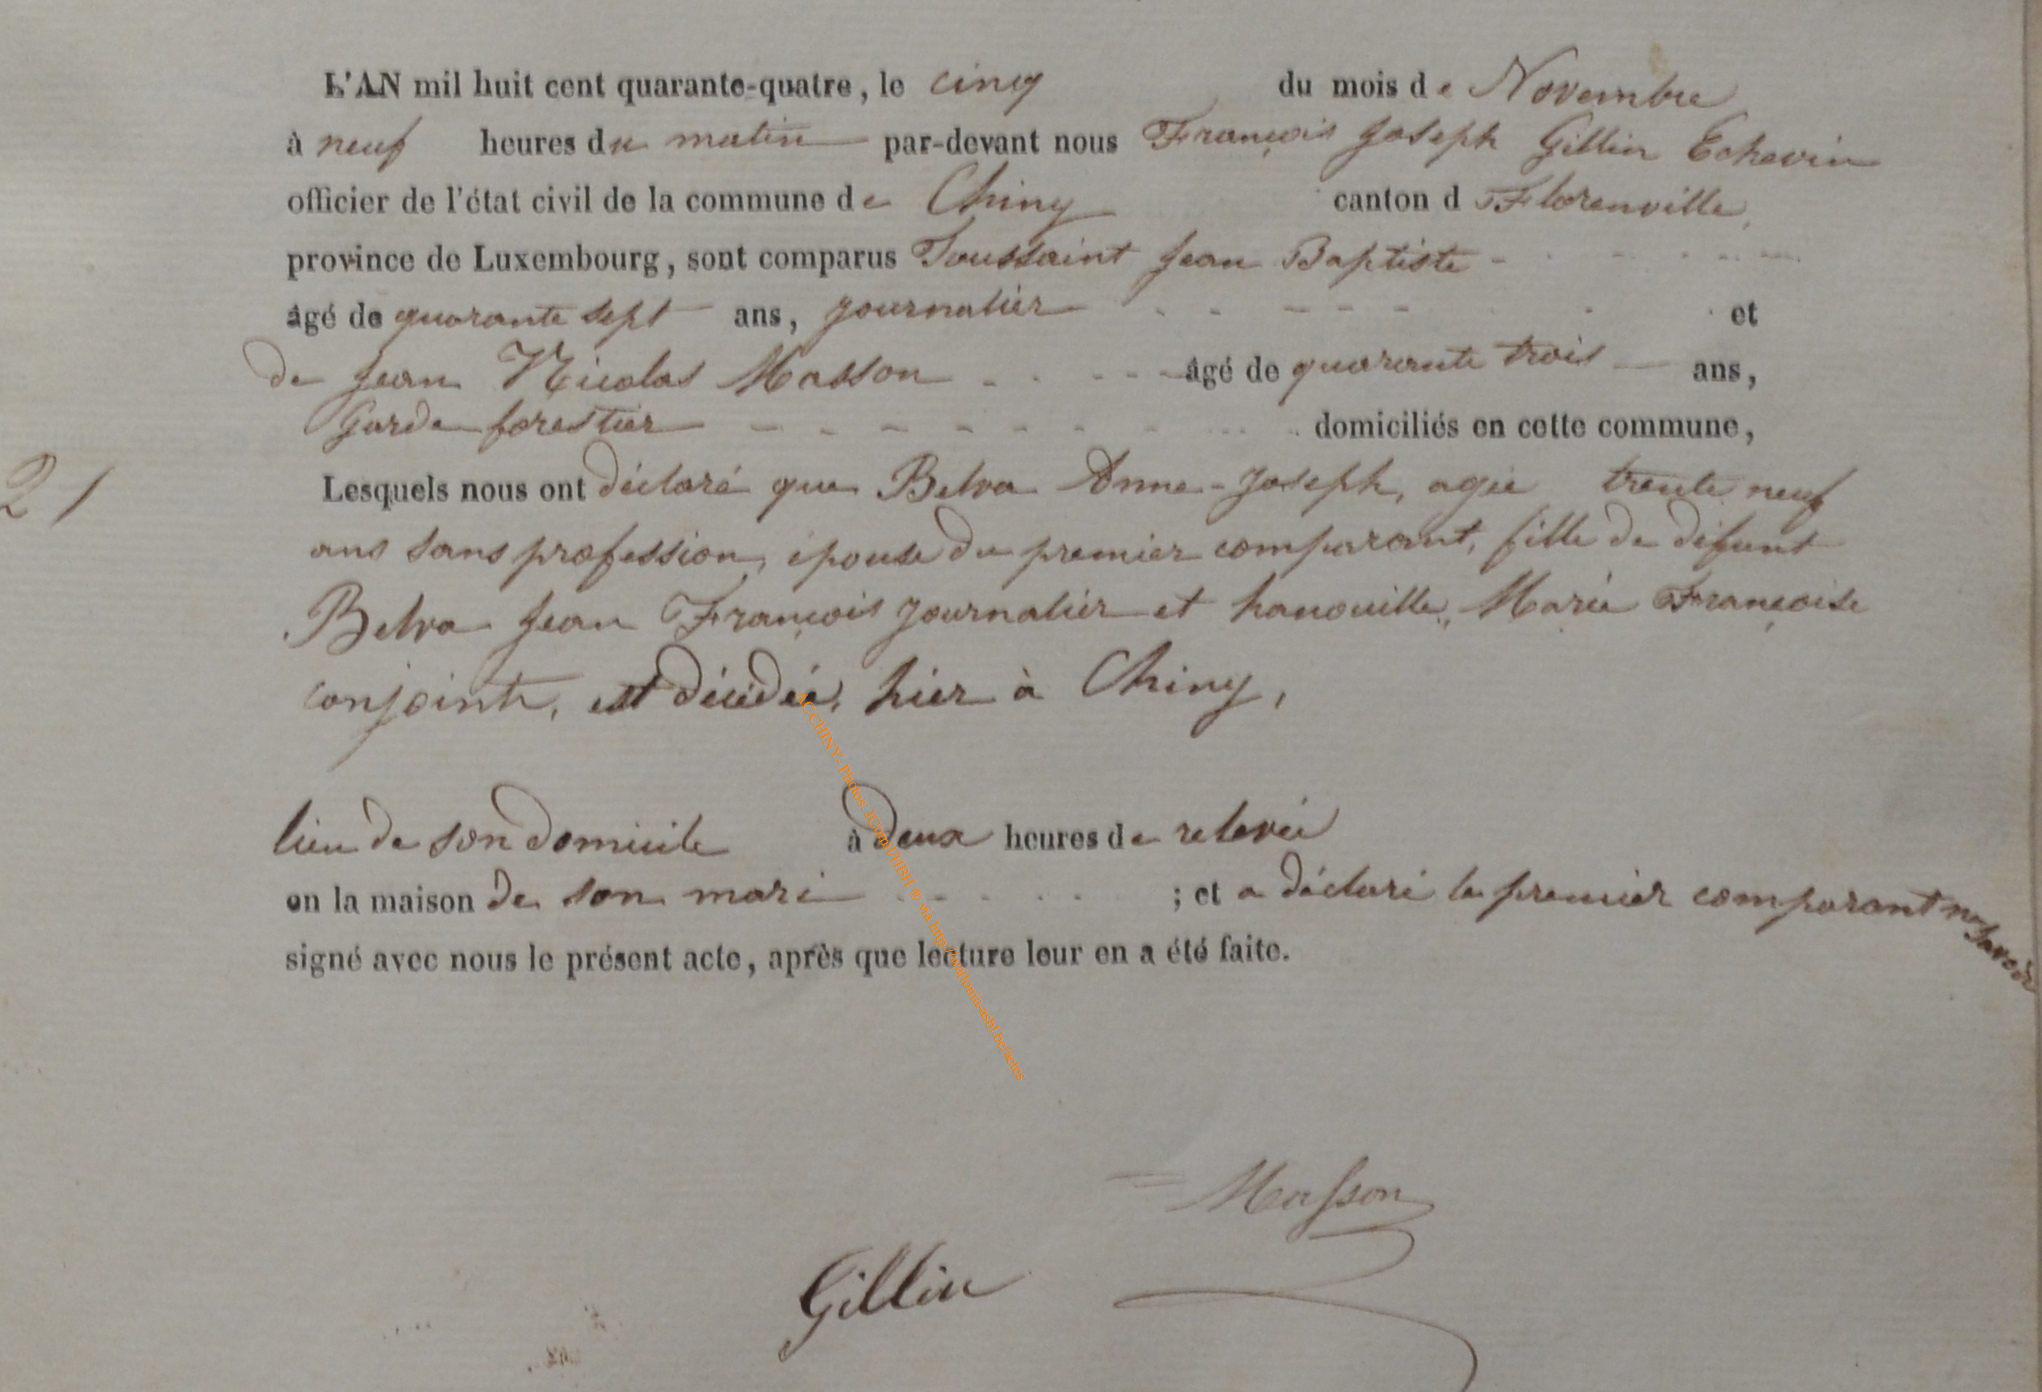 L'AN mil huit cent quarante-quatre, le cinq du mois de Novembre
à neuf heures du matin par-devant nous François Joseph Gillin Echevin
officier de l'état civil de la commune de Chiny canton d Florenville
province de Luxembourg, sont comparus Toussaint Jean Baptiste
âgé de quarante sept ans, journalier et
de Jean Nicolas Masson âgé de quarante trois ans,
Garde forestier domiciliés en cette commune,
21
Lesquels nous ont déclaré que Belva Anne-Joseph, agée trente neuf
ans sans profession, épouse du premier comparant, fille de défunt
Belva Jean François journalier et hanouille, Marie Françoise
conjoints, est décédée, hier à Chiny,
lieu de son domicile à deux heures de relevée
en la maison de son mari ; et a déclaré le premier comparant ne savoir
signé avec nous le présent acte, après que lecture leur en a été faite.
Masson
Gillin